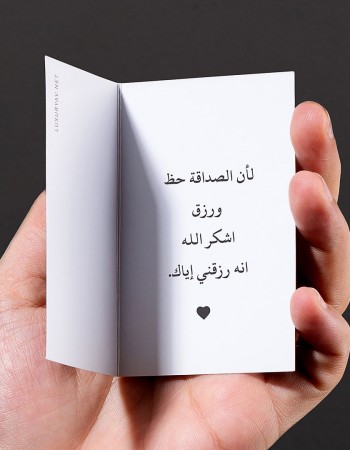 لأن الصداقة حظ
ورزق
اشكر الله
انه رزقني إياك.